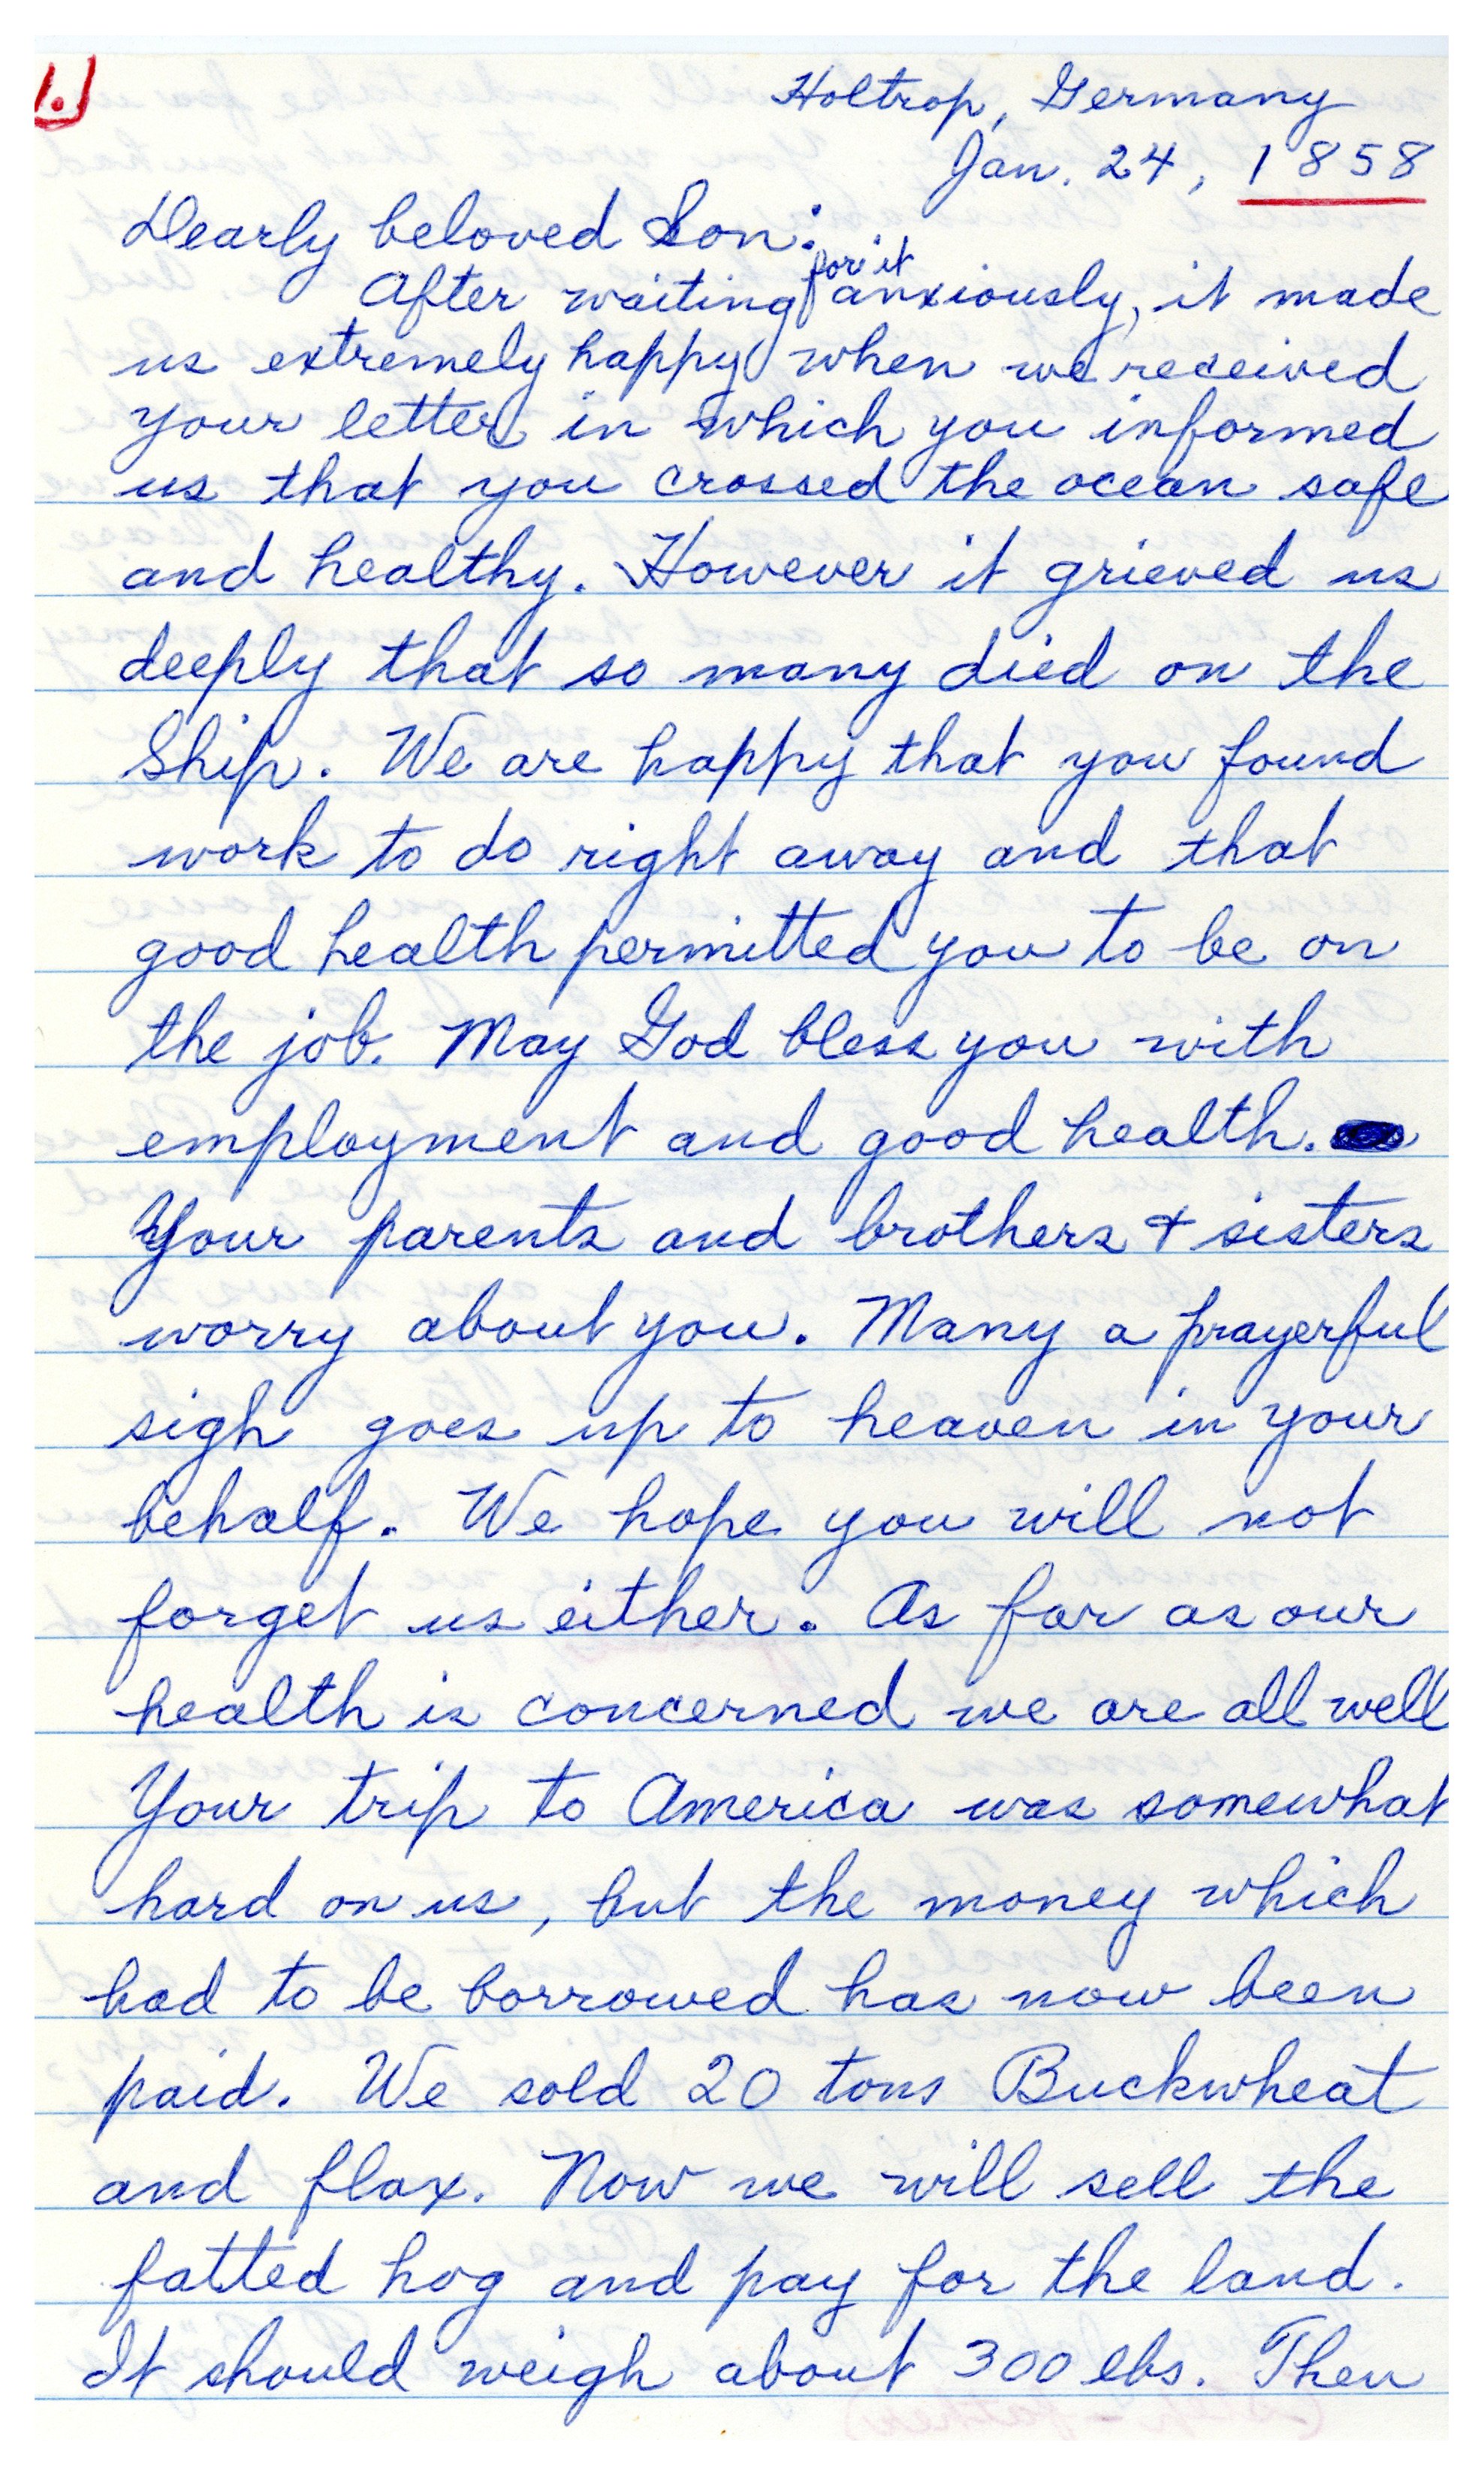 1.
Holtrop, Germany
Jan. 24, 1858
Dearly beloved Son:
for it
After waiting anxiously, it made
us extremely happy when we received
your letter in which you informed
us that you crossed the ocean safe
and healthy. However it grieved us
deeply that so many died on the
Ship. We are happy that you found
work to do right away and that
good health permitted you to be on
the job. May God bless you with
employment and good health.
Your parents and brothers + sisters
worry about you. Many a prayerful
sigh goes up to heaven in your
behalf. We hope you will not
forget us either. As far as our
health is concerned we are all well
Your trip to America was somewhat
hard on us, but the money which
had to be borrowed has now been
paid. We sold 20 tons Buckwheat
and flax. Now we will sell the
fatted hog and pay for the land.
It should weigh about 300 lbs. Then